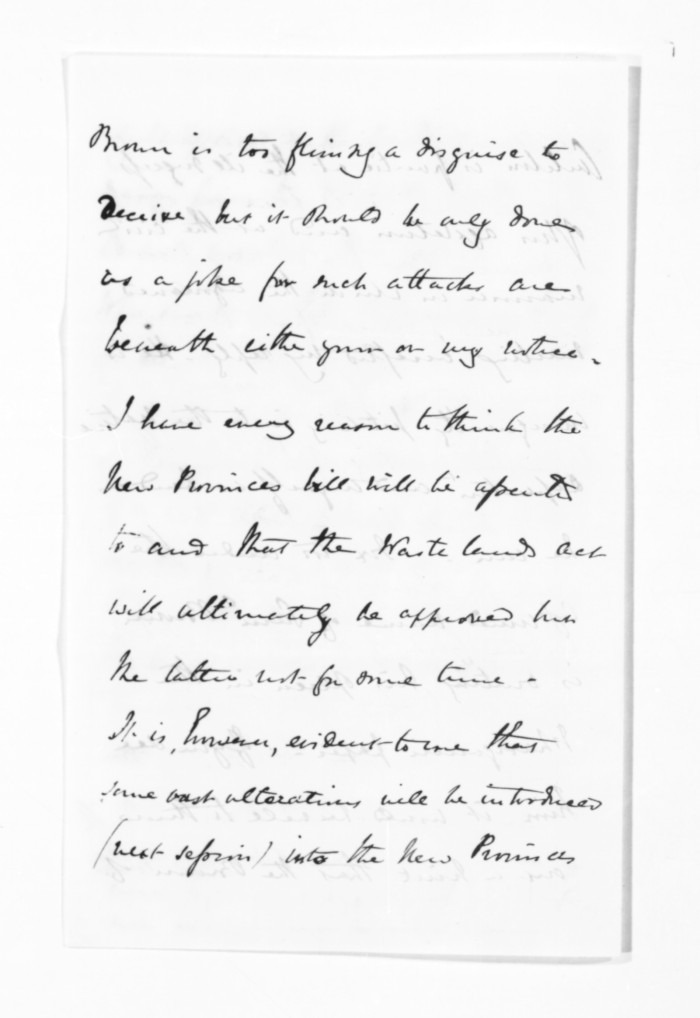 Brown is too flimsy a disguise to
deceive but it should be only done
as a joke for such attacks are
beneath either your or my notice.
I have every reason to think the
New Provinces bill will be assented
to and that the Waste lands act
will ultimately be approved but
the latter not for some time -
It is, however, evident to me that
some vast alterations will be introduced
(next session) into the New Provinces